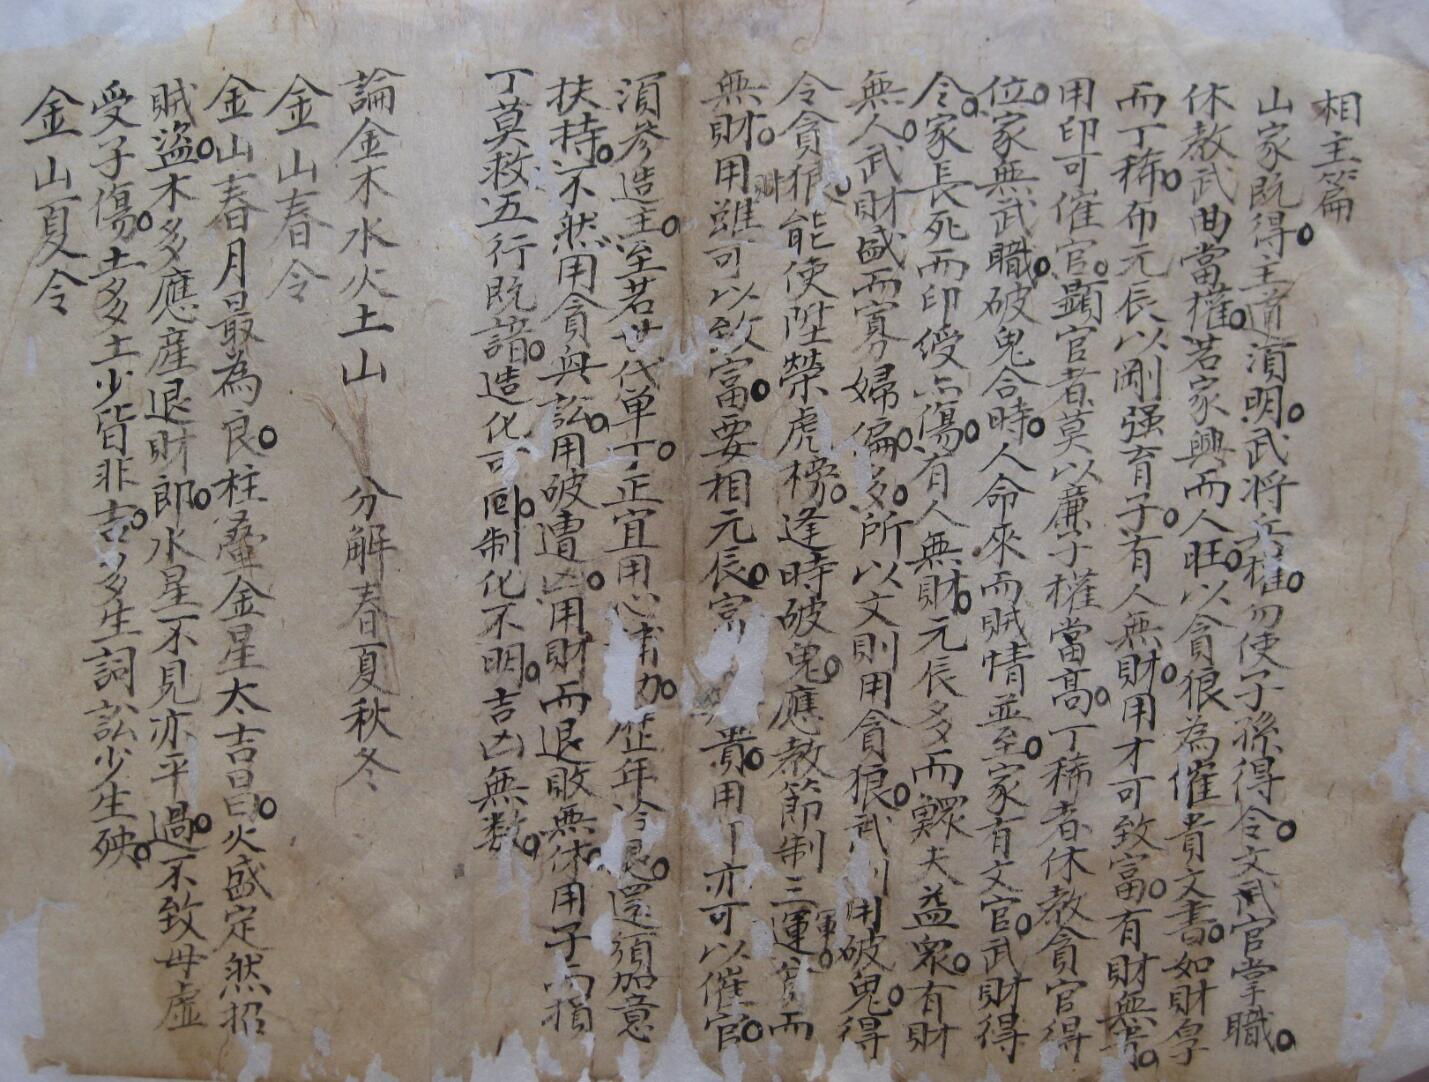 相主篇
山家既得。主道湏明。武将兵權。勿使子孫得令。文武官掌職。
休教武曲當權。若家興而人旺。以貪狼為催貴文書。如財孚
而丁稀。布元辰以剛强育子。有人無財。用才可致富。有財無
用印可催官。顯官者。莫以廉子權當高。丁稀者休教貪官得
位。家無武職。破鬼合時。人命來而賊情並至。家有文官。武財得
令。家長死而印綬亦傷。有人無財。元辰多而鰥夫益衆。有財
無人。武財盛而寡婦偏多。所以文則用貪狼。武則用破鬼。得
令貪狼。能使陞榮虎榜。逢時破鬼。應教節制三軍。運 而
無財。用財雖可以致富。要相元辰。 貴。用丁亦可以催官。
湏參造主。至若世代单丁。正宜用心 力。歷年冷退。還須加意
扶持。不然用貪興訟。用破遭凶。用財而退敗無休。用子而損
丁莫救。五行既諳。造化可回。制化不明。吉凶無数。
論金木水火土山 分解春夏秋冬
金山春令
金山春月最為良。柱疊金星太吉昌。火盛定然招
賊盗。木多應産退財郎。水星不見亦平過。不致母虚
受子傷。土多土少皆非吉。多生詞訟少生殃。
金山夏令